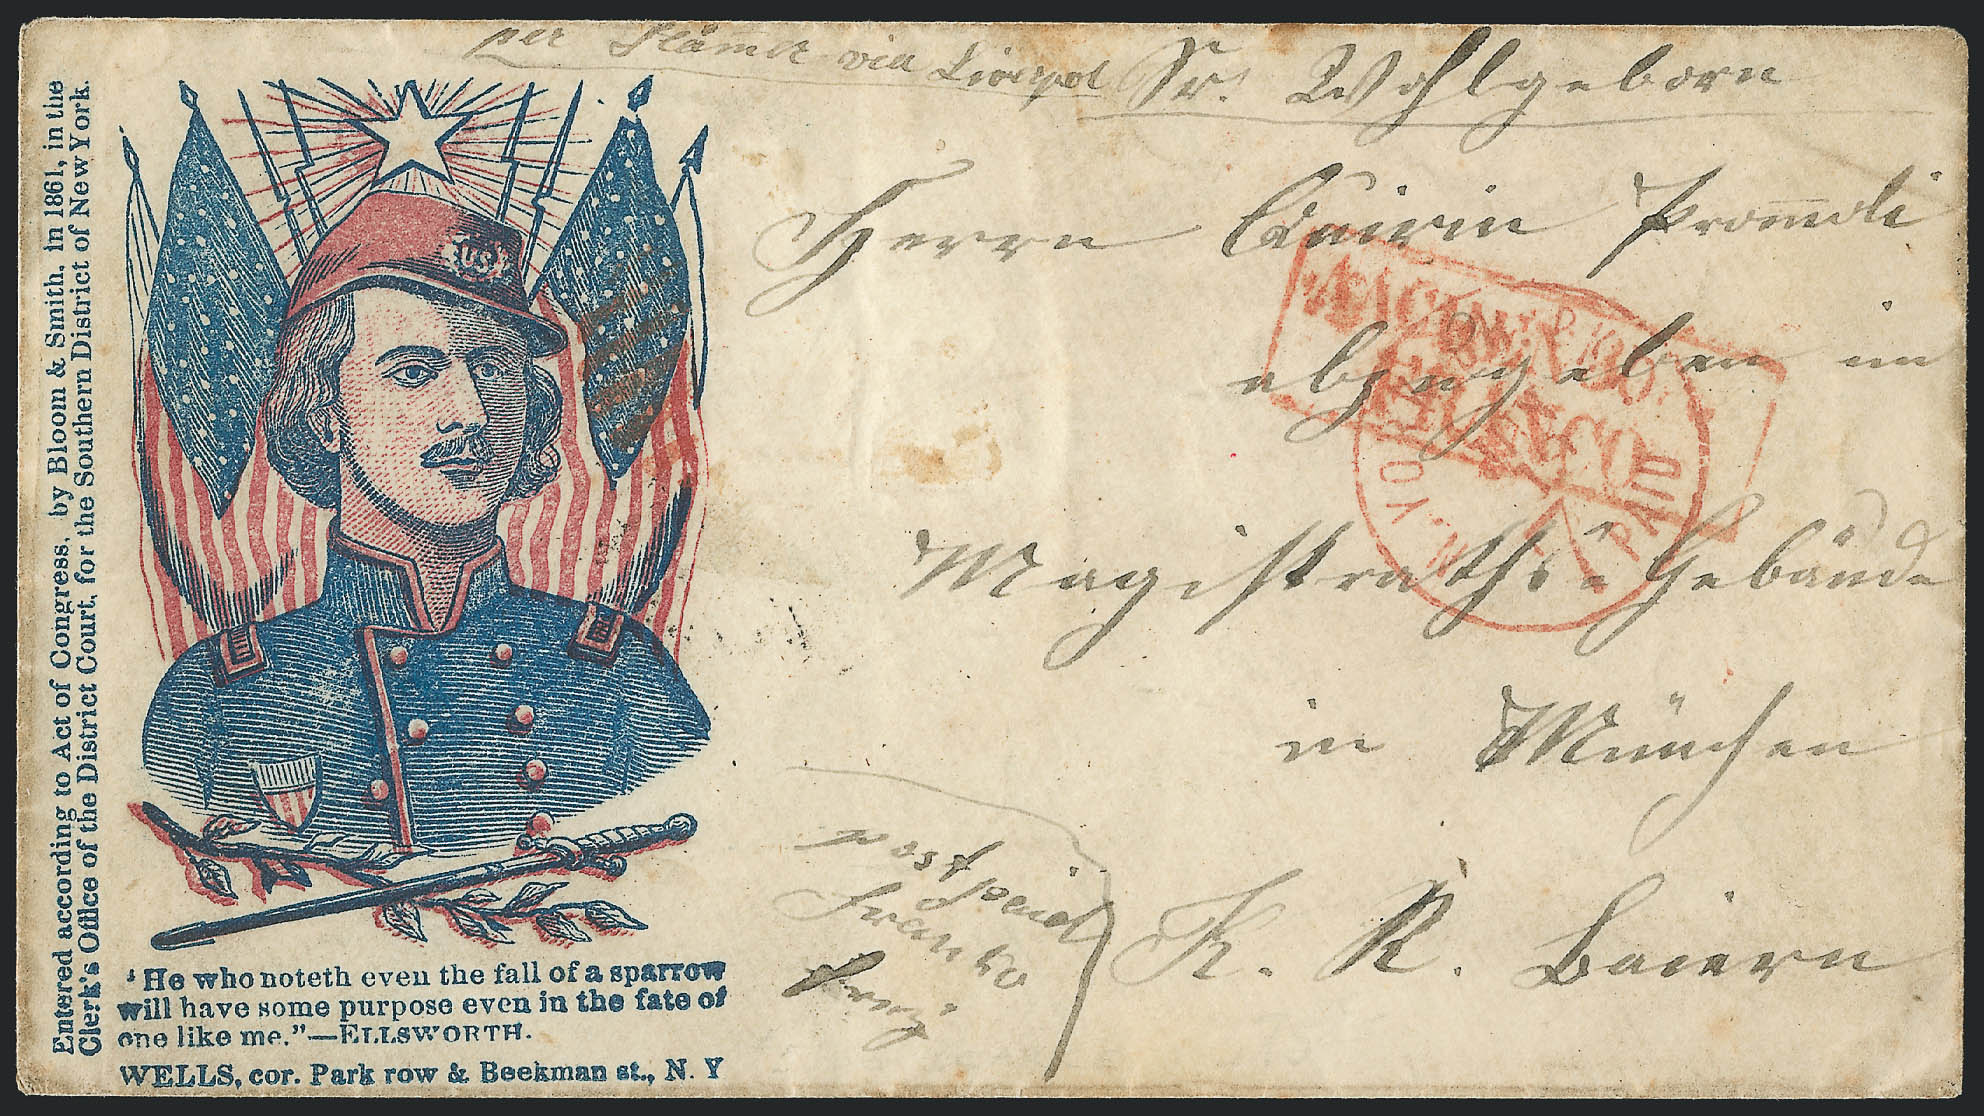 per Steamer via Liverpol
Sr. Wohlgeborn
Herrn Quirin
abzugeben im
Magistrats=Gebäude
in München
K. R. Baiern
postpaid
Franko
Entered according to Act of Congress, by Bloom & Smith, in 1861, in the
Clerk's Office of the District Court, for the Southern District of New York.
US
"He who noteth even the fall of a sparrow
will have some purpose even in the fate of
one like me."—ELLSWORTH.
WELLS, cor. Park row & Beekman st., N. Y
AACHEN
FRANCO
N. YO PAID